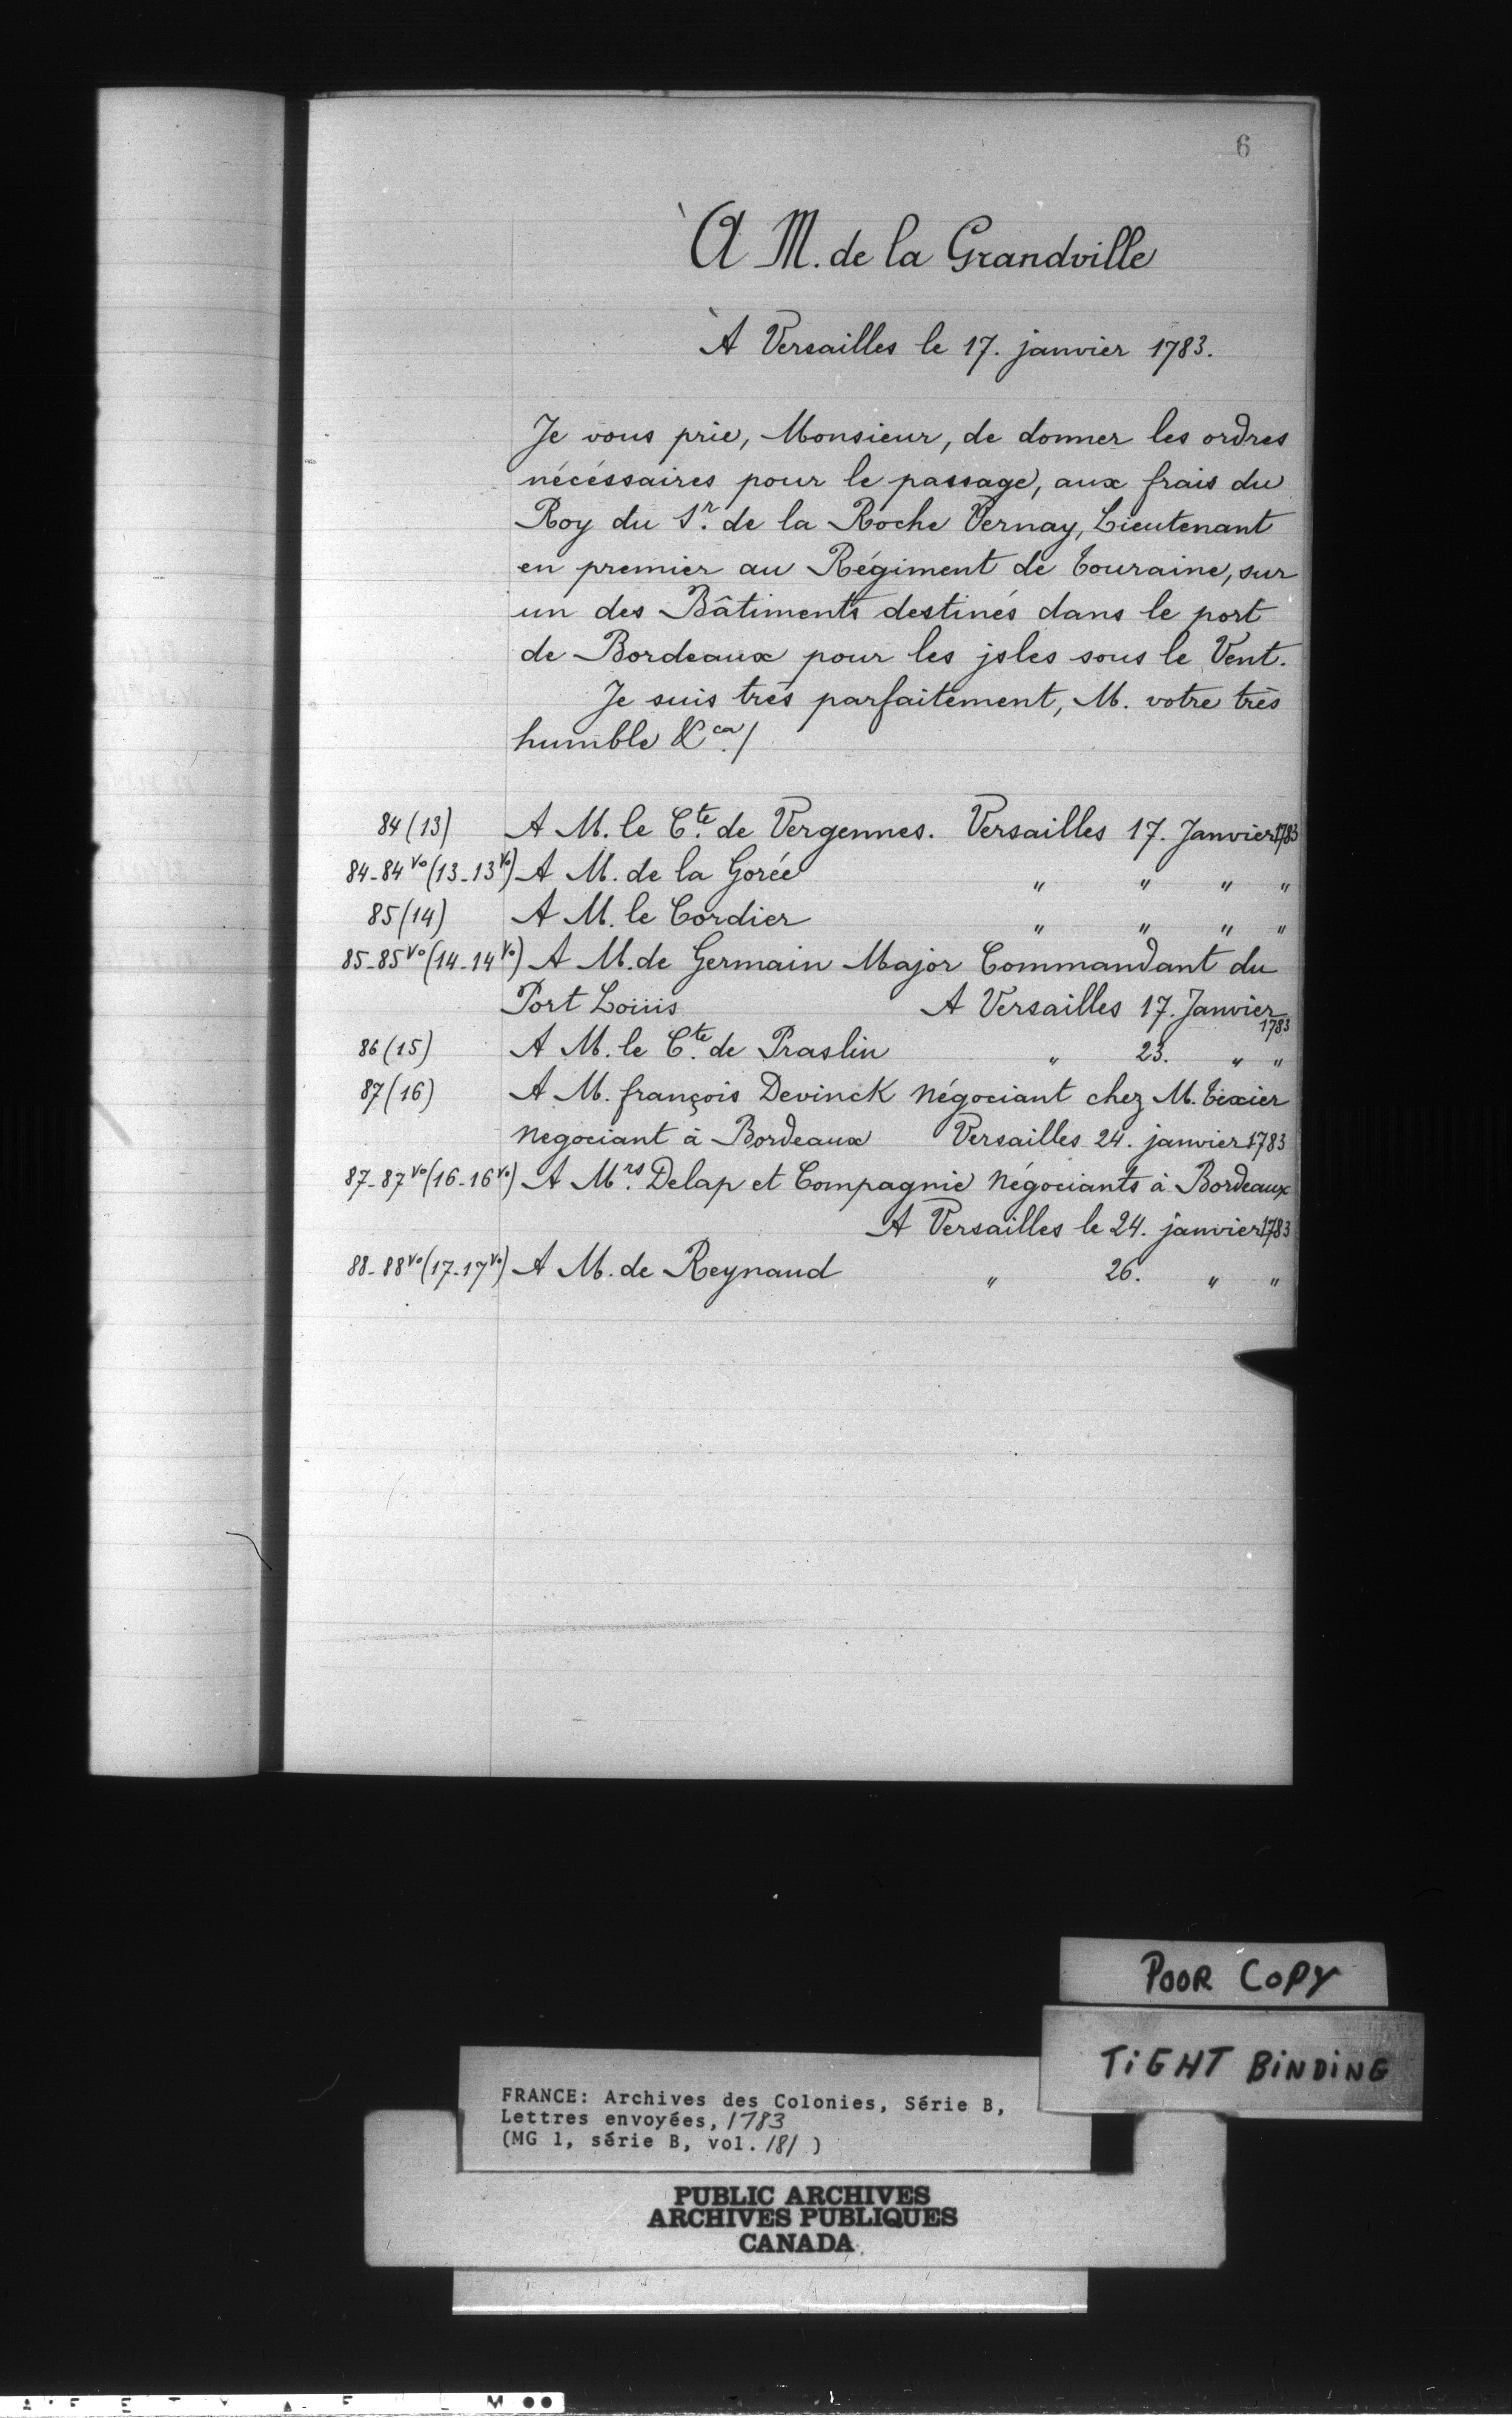 6
À M. de la Grandville
À Versailles le 17. janvier 1783.
Je vous prie, Monsieur, de donner les ordres
nécéssaires pour le passage, aux frais du
Roy du Sr. de la Roche Vernay, Lieutenant
en premier au Régiment de Touraine, sur
un des Bâtiments destinés dans le port
de Bordeaux pour les jsles sous le Vent.
Je suis très parfaitement, M. votre très
humble &ca./
84 (13) A M. le Cte. de Vergennes. Versailles 17. Janvier 1783
84-84vo (13-13vo) A M. de la Gorée " " " "
85 (14) A M. le Cordier " " " "
85-85vo (14-14vo) A M. de Germain Major Commandant du
Port Loüis A Versailles 17. Janvier 1783
86 (15) A M. le Cte. de Praslin " 23. " "
87 (16) A M. françois Devinck négociant chez M. Texier
negociant à Bordeaux Versailles 24. janvier 1783
87-87vo (16-16vo) A Mrs. Delap et Compagnie négociants à Bordeaux
A Versailles le 24. janvier 1783
88-88vo (17-17vo) A M. de Reynaud " 26. " "
POOR COPY
TiGHT BiNDiNG
FRANCE: Archives des Colonies, Série B,
Lettres envoyées, 1783
(MG 1, série B, vol. 181 )
PUBLIC ARCHIVES
ARCHIVES PUBLIQUES
CANADA